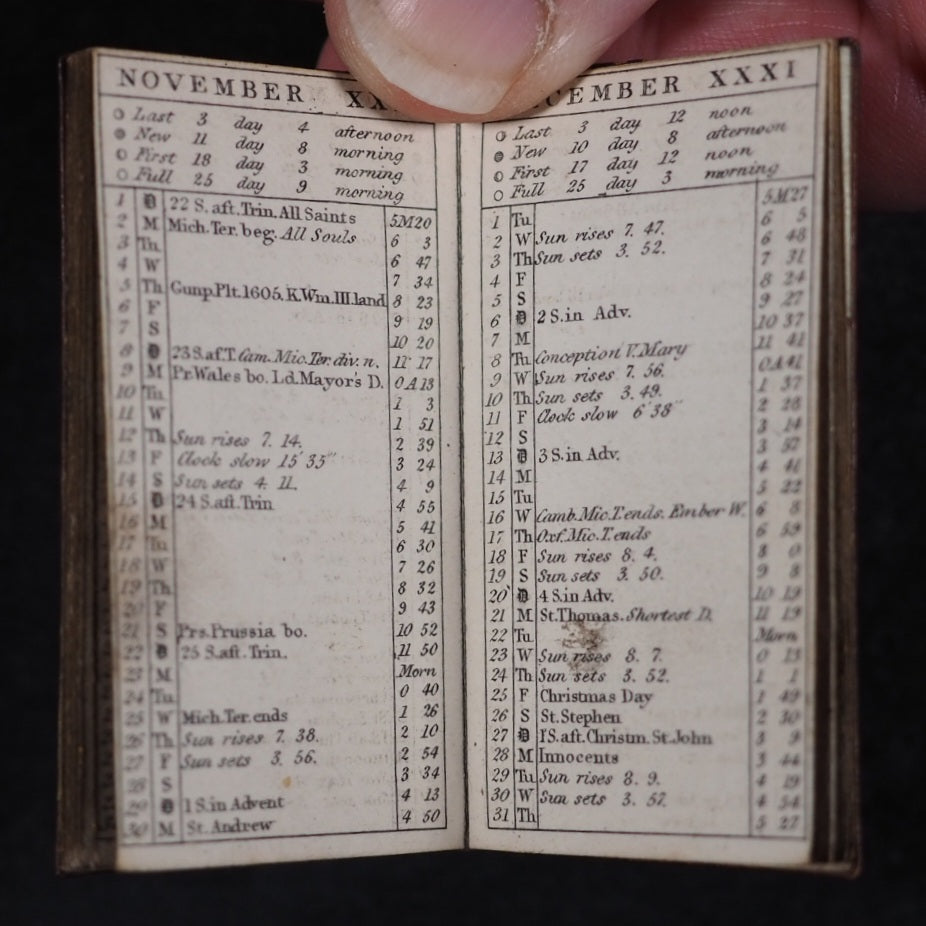 NOVEMBER XX
Last 3 day 4 afternoon
New 11 day 8 morning
First 18 day 3 morning
Full 25 day 9 morning
1 D 22 S. aft. Trin. All Saints 5M20
2 M Mich. Ter. beg. All Souls 6 3
3 Tu 6 47
4 W 7 34
5 Th Gunp. Plt. 1605. K.Wm. III. land 8 23
6 F 9 19
7 S 10 20
8 D 23 S. af T. Cam. Mic. Ter. div. n. 11 17
9 M Pr. Wales bo. Ld. Mayor's D. 0A13
10 Tu 1 3
11 W 1 51
12 Th Sun rises 7. 14. 2 39
13 F Clock slow 15' 35" 3 24
14 S Sun sets 4. 11. 4 9
15 D 24 S. aft. Trin 4 55
16 M 5 41
17 Tu 6 30
18 W 7 26
19 Th 8 32
20 F 9 43
21 S Prs. Prussia bo. 10 52
22 D 25 S. aft. Trin. 11 50
23 M Morn
24 Tu 0 40
25 W Mich. Ter. ends 1 26
26 Th Sun rises 7. 38. 2 10
27 F Sun sets 3. 56. 2 54
28 S 3 34
29 D 1 S. in Advent 4 13
30 M St. Andrew 4 50
CEMBER XXXI
Last 3 day 12 noon
New 10 day 8 afternoon
First 17 day 12 noon
Full 25 day 3 morning
1 Tu 5M27
2 W Sun rises 7. 47. 6 5
3 Th Sun sets 3. 52. 6 48
4 F 7 31
5 S 8 24
6 D 2 S. in Adv. 9 27
7 M 10 37
8 Tu Conception V. Mary 11 41
9 W Sun rises 7. 56. 0A41
10 Th Sun sets 3. 49. 1 37
11 F Clock slow 6' 38" 2 28
12 S 3 14
13 D 3 S. in Adv. 3 57
14 M 4 41
15 Tu 5 22
16 W Camb. Mic. T. ends. Ember W. 6 8
17 Th Oxf. Mic. T. ends 6 59
18 F Sun rises 8. 4. 8 0
19 S Sun sets 3. 50. 9 8
20 D 4 S. in Adv. 10 19
21 M St. Thomas. Shortest D. 11 19
22 Tu Morn
23 W Sun rises 8. 7. 0 13
24 Th Sun sets 3. 52. 1 1
25 F Christmas Day 1 49
26 S St. Stephen 2 30
27 D 1 S. aft. Christm. St. John 3 9
28 M Innocents 3 44
29 Tu Sun rises 8. 9. 4 19
30 W Sun sets 3. 57. 4 54
31 Th 5 27